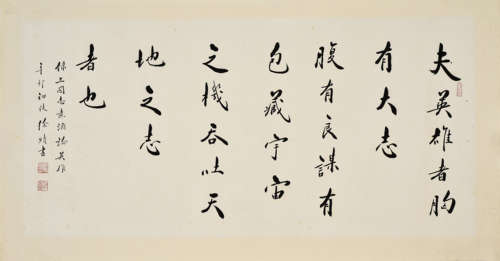 夫英雄者胸
有大志
腹有良謀有
包藏宇宙
之機吞吐天
地之志
者也
錄三國志煮酒論英雄
辛卯初夏